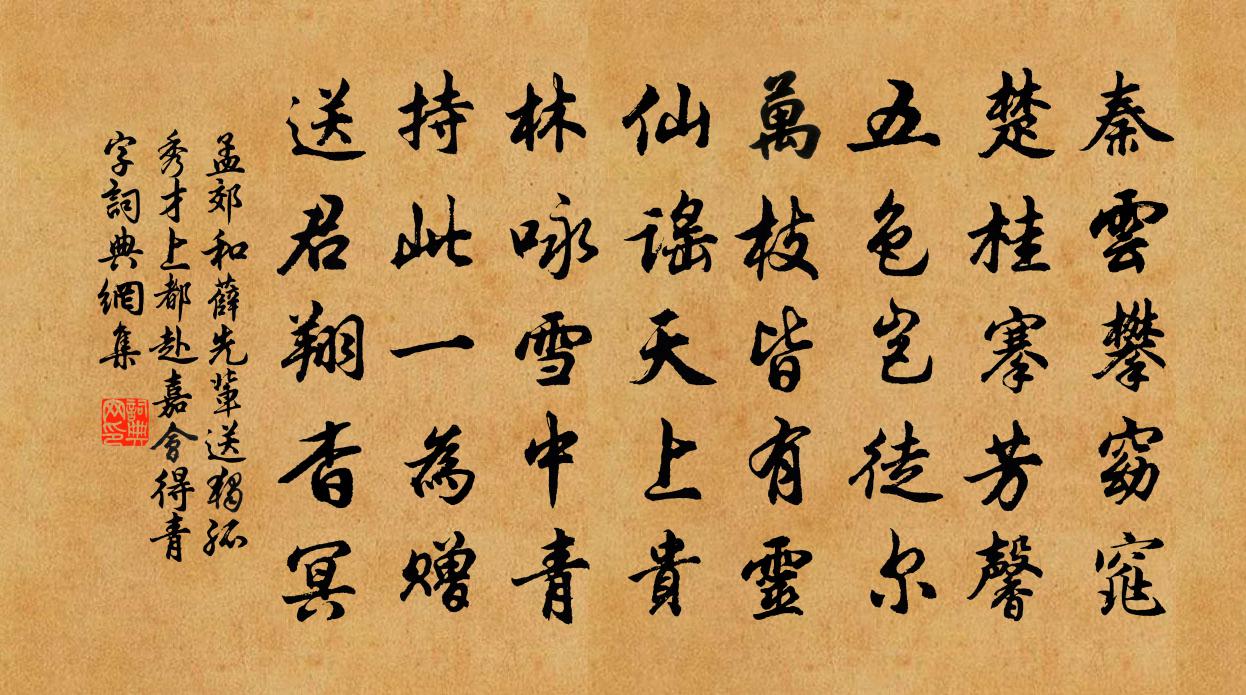 秦雲攀窈窕
楚桂搴芳馨
五色豈徒尔
萬枝皆有靈
仙謠天上貴
林咏雪中青
持此一為贈
送君翔杳冥
孟郊和薛先輩送獨孤
秀才上都赴嘉會得青
字詞典網集
詞典
网印